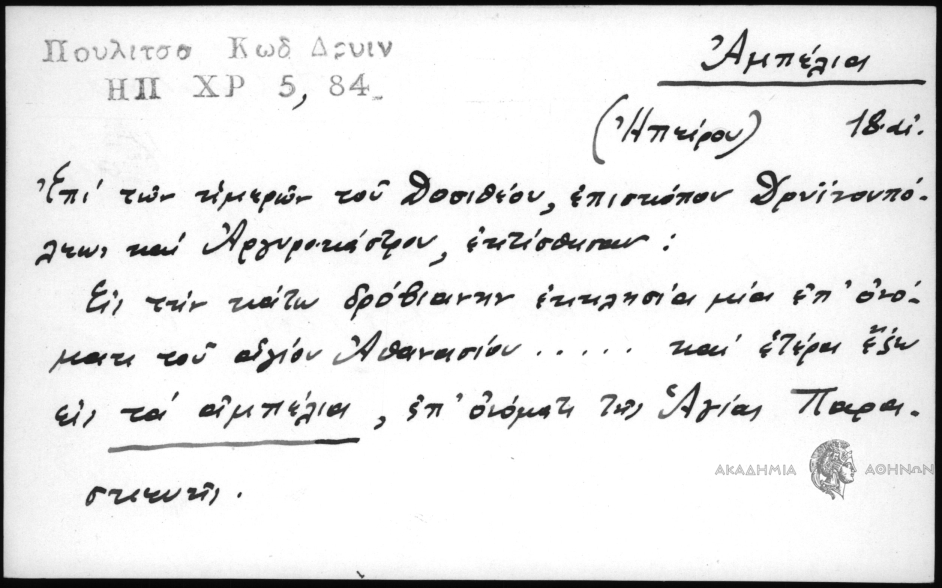 Πουλιτσα Κωδ Δρυιν
ΗΠ ΧΡ 5, 84
Ἀμπέλια
(Ἠπείρου) 18 αἰ.
Ἐπί τῶν ἡμερῶν τοῦ Δοσιθέου, ἐπισκόπου Δρυϊνουπό-
λεως καί Ἀργυροκάστρου, ἐκτίσθησαν :
Εἰς τήν κάτω δρόβιανην ἐκκλησία μία ἐπ' ὀνό-
ματι τοῦ ἁγίου Ἀθανασίου ..... καί ἑτέρα ἔξω
εἰς τά ἀμπέλια, ἐπ' ὀνόματι τῆς Ἁγίας Παρα-
σκευῆς.
ΑΚΑΔΗΜΙΑ ΑΘΗΝΩΝ